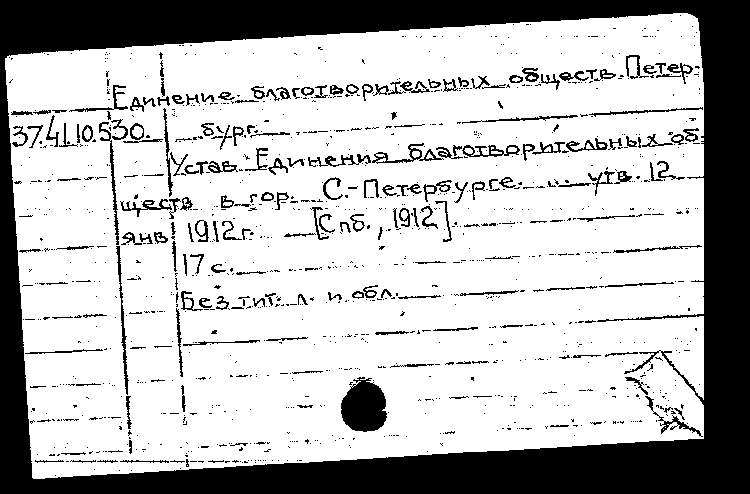 Единение благотворительных обществ. Петер-
37.41.10.530. бург.
Устав Единения благотворительных об-
ществ в гор. С.-Петербурге. ... утв. 12
янв 1912 г. [Спб., 1912].
17 с.
Без тит. л. и обл.